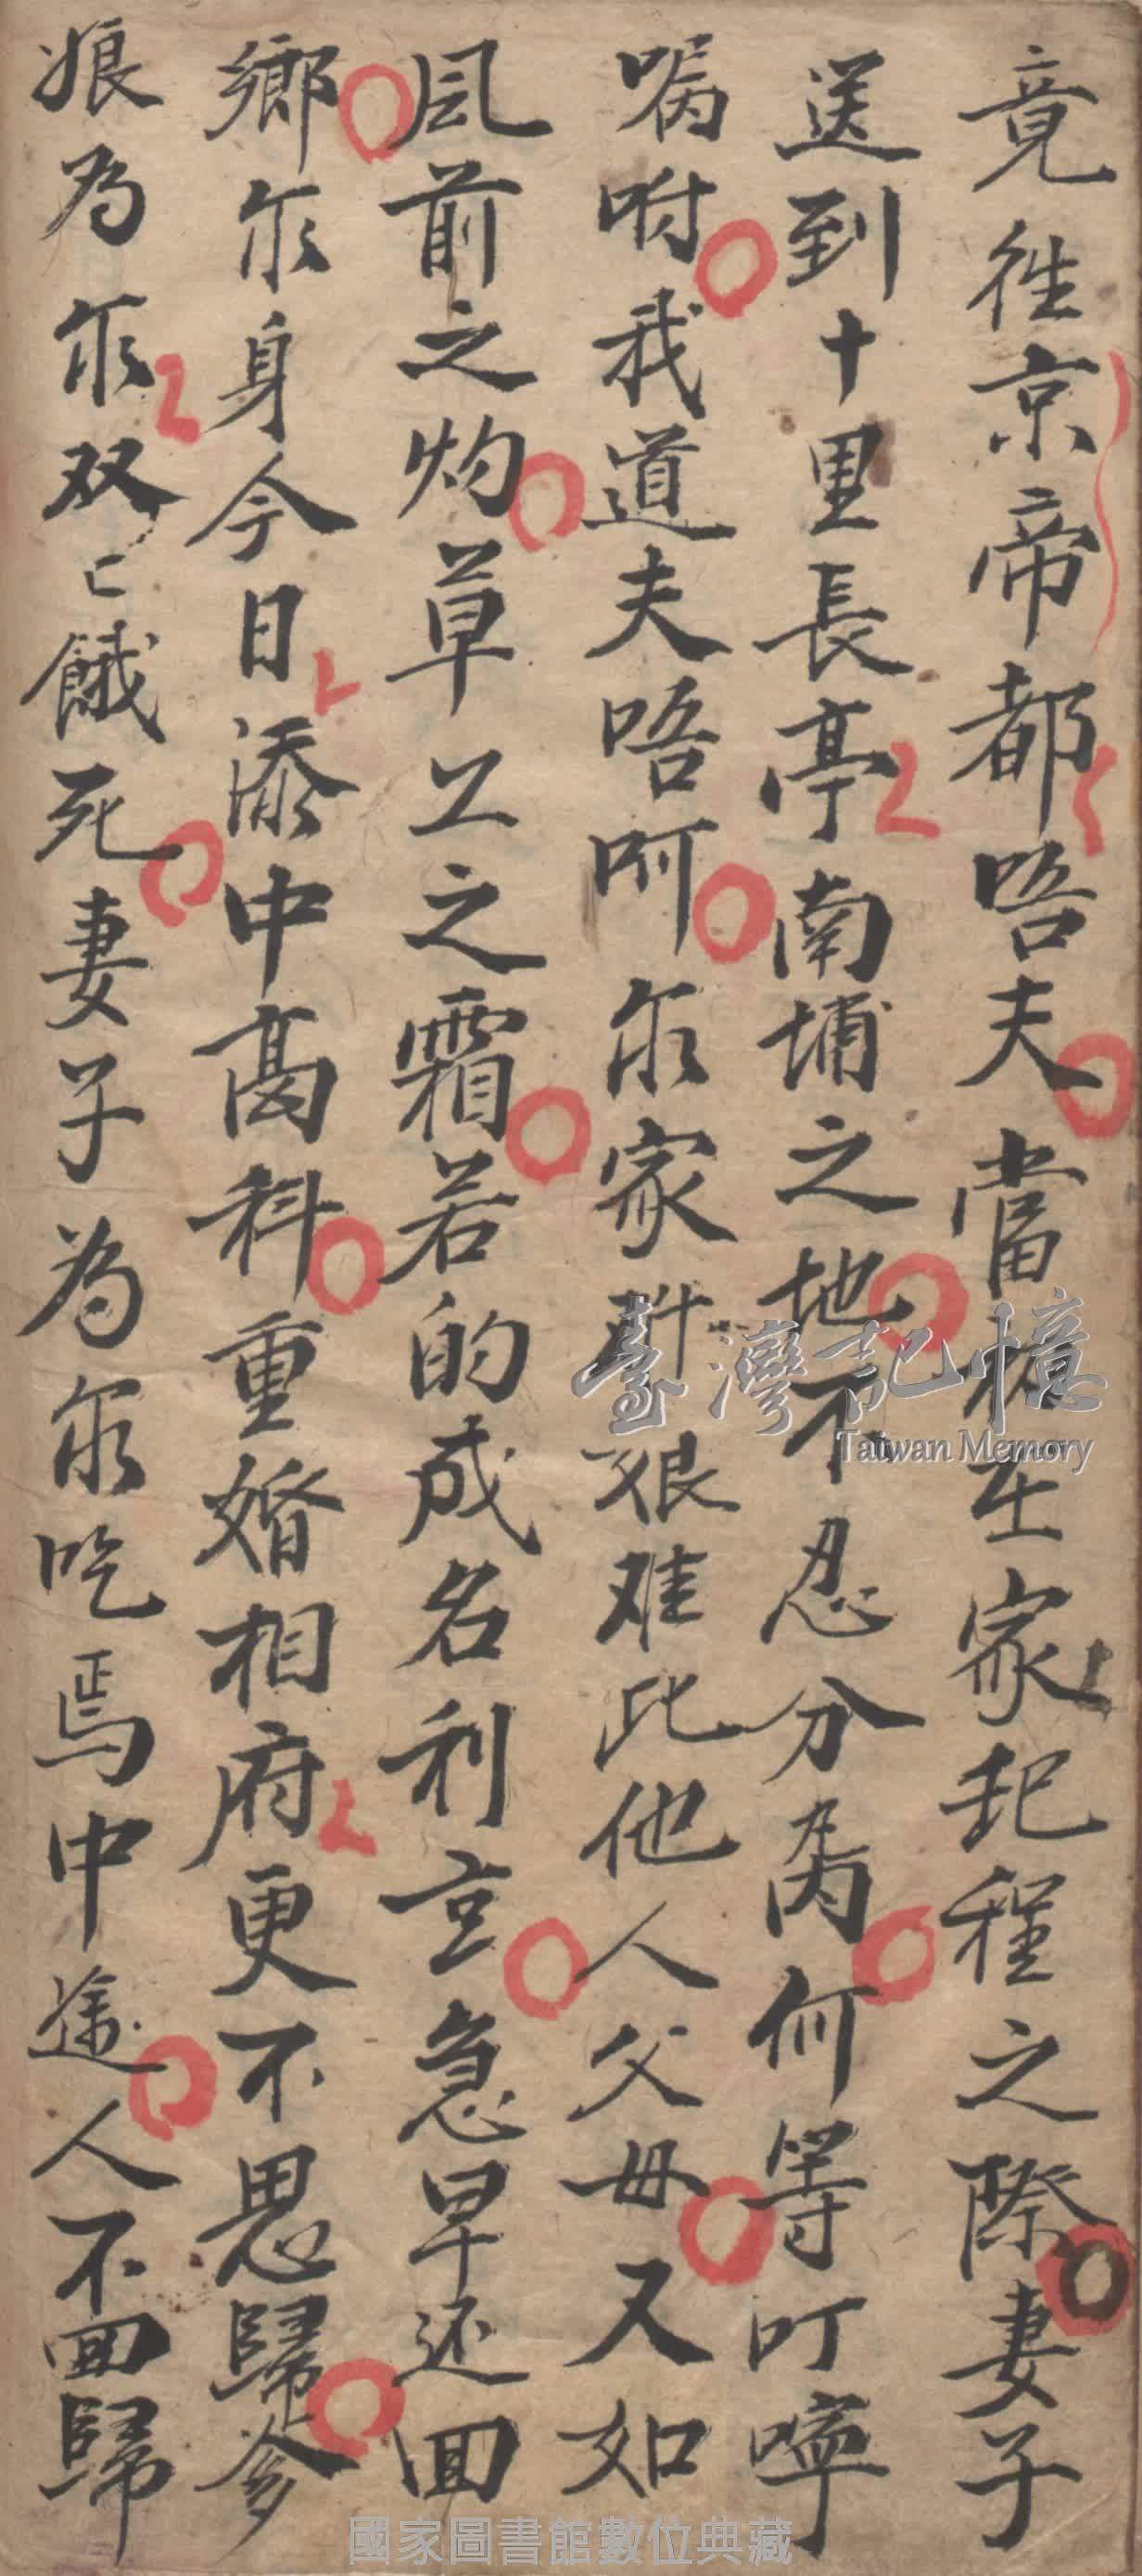 竟徃京帝都唔夫當初在家起程之際妻子
送到十里長亭南埔之地不忍分离何等叮嚀
嘱咐我道夫唔呵尔家艱难比他人父母又如
風前之灼草上之霜若的成名利京急早还回
鄉尔身今日添中高科重婚相府更不思歸爹
娘為尔双〻餓死妻子為尔吃焉中途人不回歸
臺灣記憶
Taiwan Memory
國家圖書館數位典藏